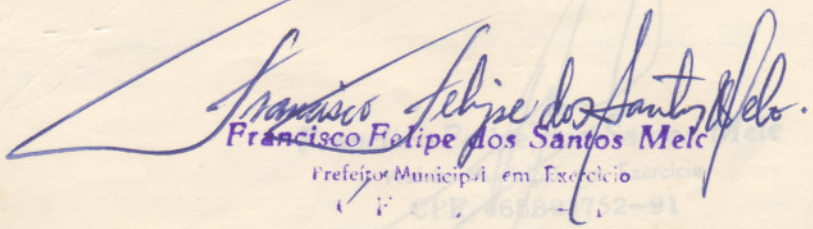 Francisco Felipe dos Santos Melo.
Francisco Felipe dos Santos Melo
Prefeito Municipal em Exercício
C F